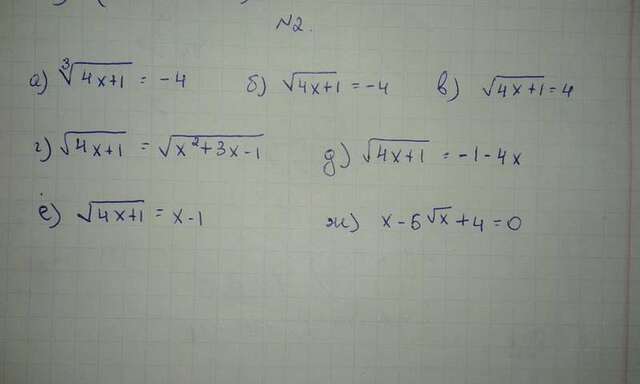 N2.
а) ∛(4x+1) = -4 б) √(4x+1) = -4 в) √(4x+1) = 4
г) √(4x+1) = √(x²+3x-1) д) √(4x+1) = -1-4x
е) √(4x+1) = x-1 ж) x-5√x+4=0